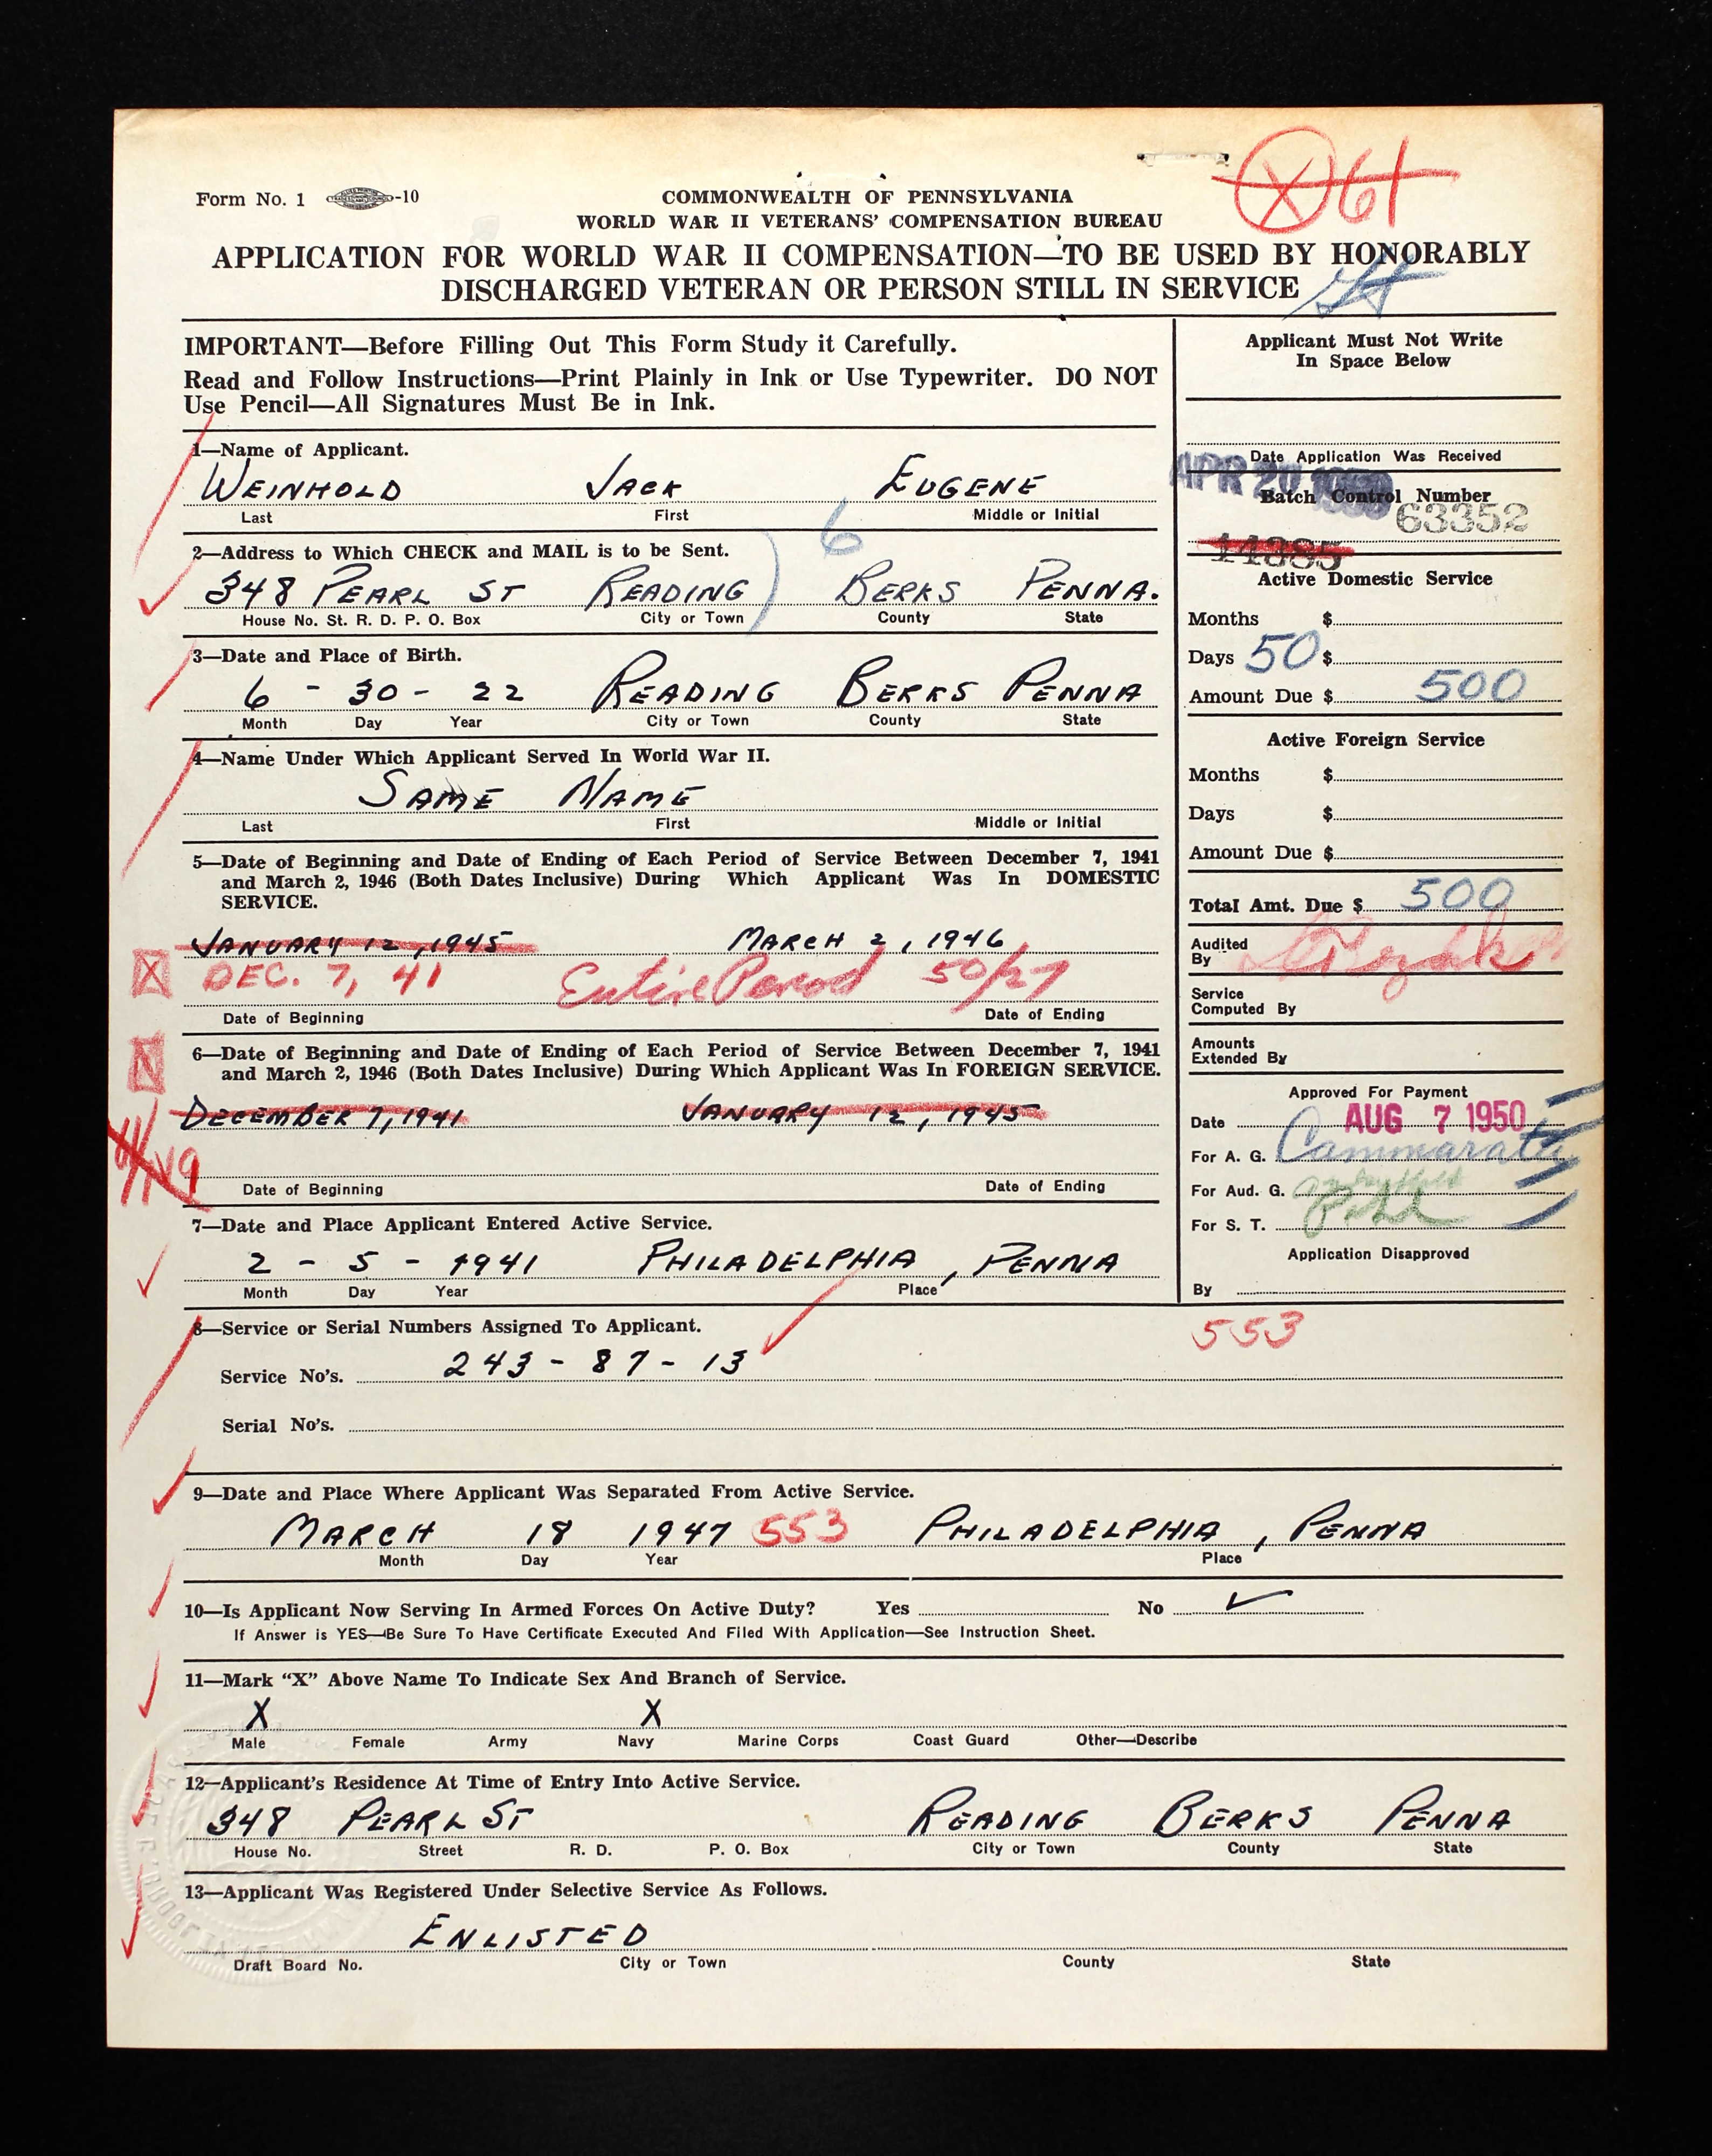 Form No. 1 -10
COMMONWEALTH OF PENNSYLVANIA
WORLD WAR II VETERANS' COMPENSATION BUREAU
X 61
APPLICATION FOR WORLD WAR II COMPENSATION—TO BE USED BY HONORABLY
DISCHARGED VETERAN OR PERSON STILL IN SERVICE
IMPORTANT—Before Filling Out This Form Study it Carefully.
Read and Follow Instructions—Print Plainly in Ink or Use Typewriter. DO NOT
Use Pencil—All Signatures Must Be in Ink.
1—Name of Applicant.
WEINHOLD JACK EUGENE
Last First Middle or Initial
2—Address to Which CHECK and MAIL is to be Sent.
6
348 PEARL ST READING BERKS PENNA.
House No. St. R. D. P. O. Box City or Town County State
3—Date and Place of Birth.
6 - 30 - 22 READING BERKS PENNA
Month Day Year City or Town County State
4—Name Under Which Applicant Served In World War II.
SAME NAME
Last First Middle or Initial
5—Date of Beginning and Date of Ending of Each Period of Service Between December 7, 1941
and March 2, 1946 (Both Dates Inclusive) During Which Applicant Was In DOMESTIC
SERVICE.
JANUARY 12, 1945 MARCH 2, 1946
X DEC. 7, 41 Entire Period 50/27
Date of Beginning Date of Ending
N
6—Date of Beginning and Date of Ending of Each Period of Service Between December 7, 1941
and March 2, 1946 (Both Dates Inclusive) During Which Applicant Was In FOREIGN SERVICE.
DECEMBER 7, 1941 JANUARY 12, 1945
Date of Beginning Date of Ending
7—Date and Place Applicant Entered Active Service.
2 - 5 - 1941 PHILADELPHIA, PENNA
Month Day Year Place
Applicant Must Not Write
In Space Below
Date Application Was Received
APR 20 1950
Batch Control Number
63352
14385
Active Domestic Service
Months $
Days 50 $
Amount Due $ 500
Active Foreign Service
Months $
Days $
Amount Due $
Total Amt. Due $ 500
Audited
By
Service
Computed By
Amounts
Extended By
Approved For Payment
Date AUG 7 1950
For A. G. Cammarata
For Aud. G.
For S. T.
Application Disapproved
By
8—Service or Serial Numbers Assigned To Applicant.
553
Service No's. 243 - 87 - 13
Serial No's.
9—Date and Place Where Applicant Was Separated From Active Service.
MARCH 18 1947 553 PHILADELPHIA, PENNA
Month Day Year Place
10—Is Applicant Now Serving In Armed Forces On Active Duty? Yes No ✓
If Answer is YES—Be Sure To Have Certificate Executed And Filed With Application—See Instruction Sheet.
11—Mark "X" Above Name To Indicate Sex And Branch of Service.
X X
Male Female Army Navy Marine Corps Coast Guard Other—Describe
12—Applicant's Residence At Time of Entry Into Active Service.
348 PEARL ST READING BERKS PENNA
House No. Street R. D. P. O. Box City or Town County State
13—Applicant Was Registered Under Selective Service As Follows.
ENLISTED
Draft Board No. City or Town County State